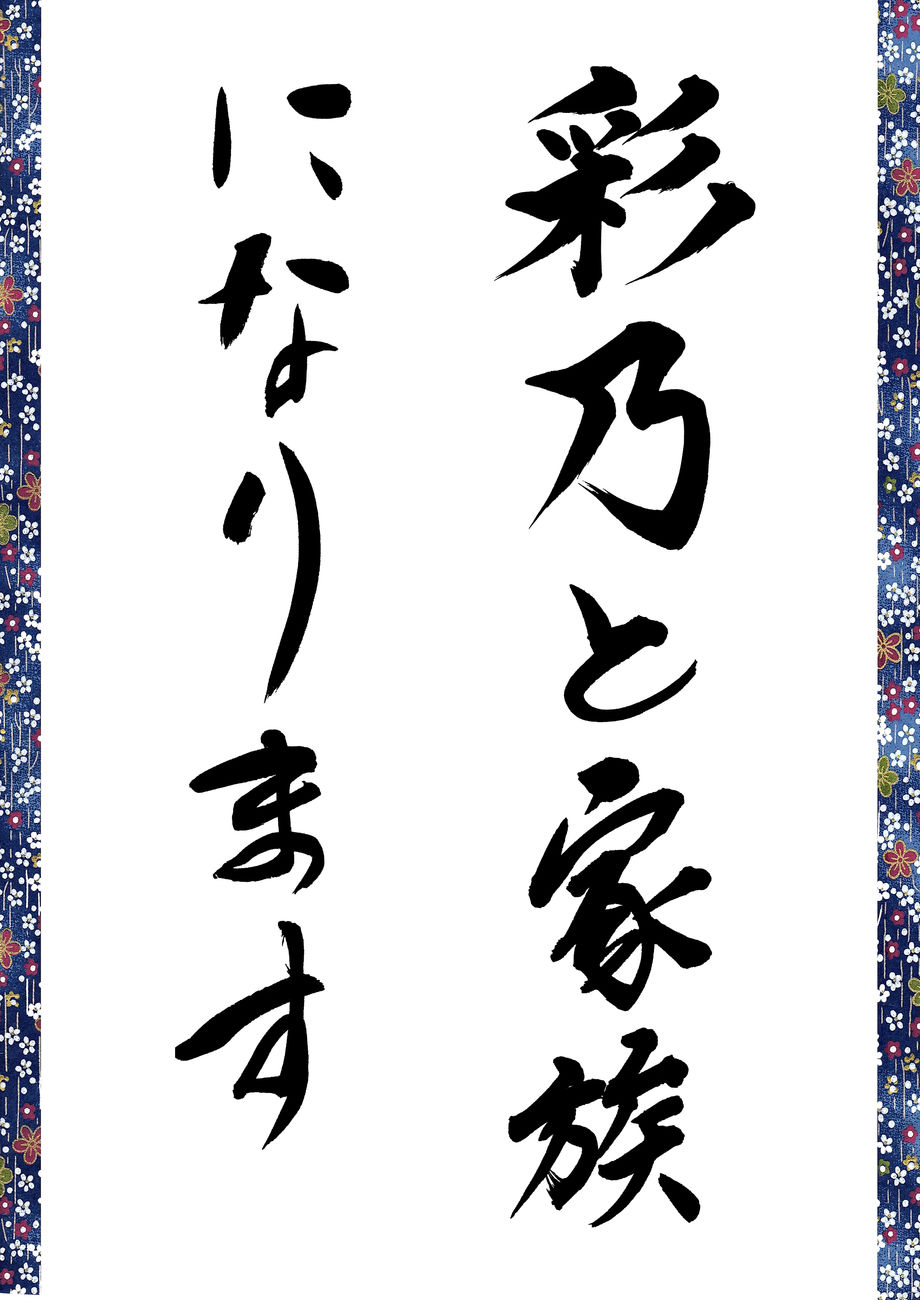 彩乃と家族
になります